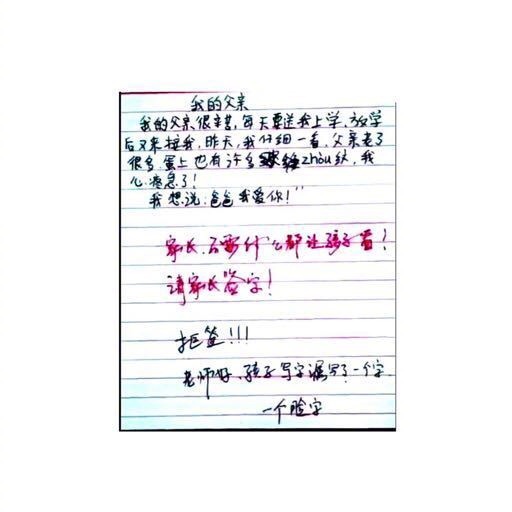 我的父亲
我的父亲很辛苦，每天要送我上学，放学
后又来接我，昨天，我仔细一看，父亲老了
很多，蛋上也有许多zhou纹，我
心疼急了！
我想说：爸爸我爱你！"
家长，不要什么都让孩子看！
请家长签字！
拒签!!!
老师好，孩子写字漏写了一个字
一个脸字